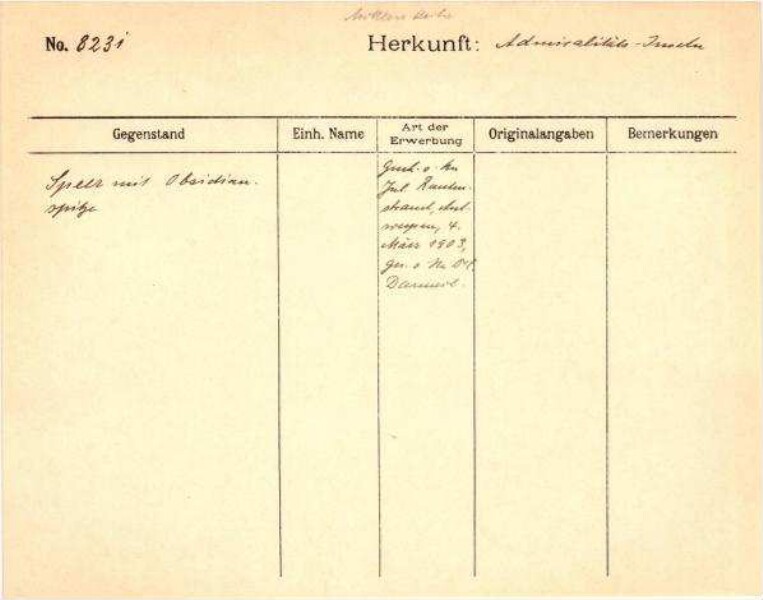 No. 8231
Herkunft: Admiralitäts-Inseln
Gegenstand
Einh. Name
Art der
Erwerbung
Originalangaben
Bemerkungen
Speer mit Obsidian-
spitze
Jul. Rauten-
strauch, Ant-
werpen, 4.
März 1903,